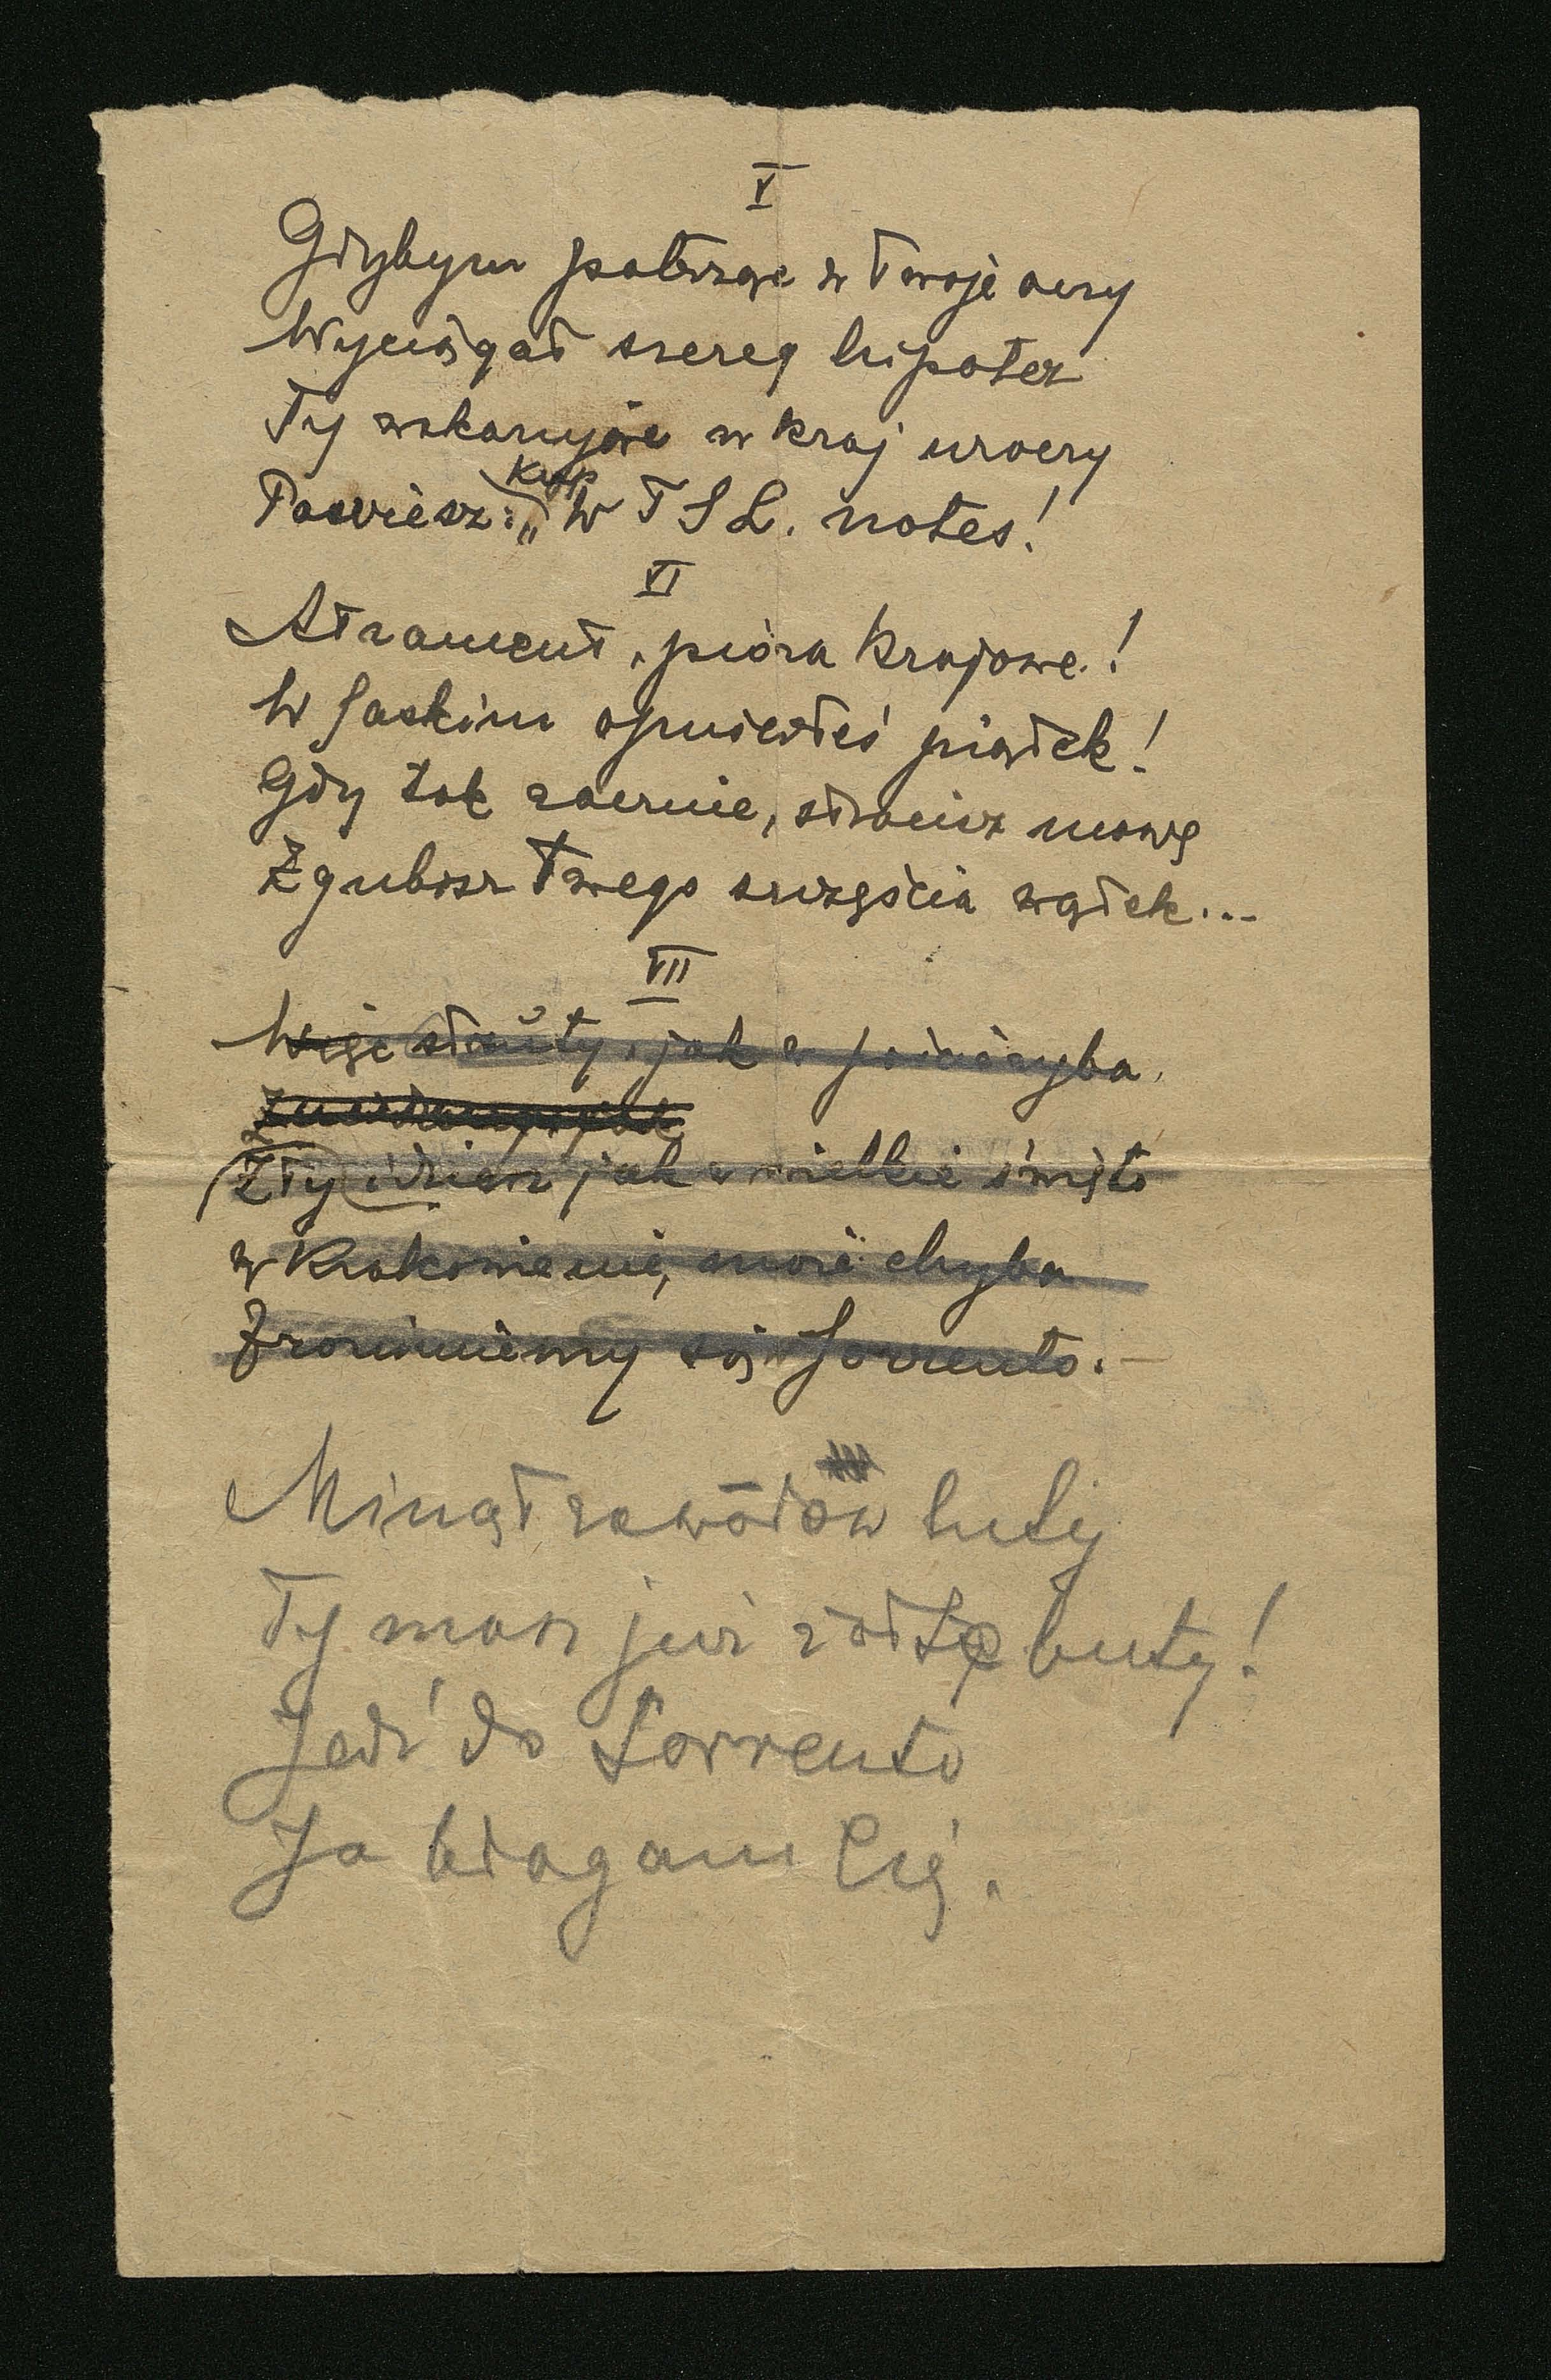 V
Gdybym patrząc w Twoje oczy
Wyciągał szereg hipotez
Ty wskazując w kraj uroczy
Powiesz: „Kup W T S L. notes!
VI
Atrament, pióra krajowe!
W Saskim opuściłeś piątek!
Gdy tak zacznie, stracisz mowę
Zgubisz Twego szczęścia wątek...
VII
Więc struty, jak ryba
Zły idziesz jak w wielkie święto
w Krakowie nie, może chyba
Sorrento. —
Minął zawodów luty
Ty masz już żółte buty!
Jedź do Sorrento
Ja błagam Cię.